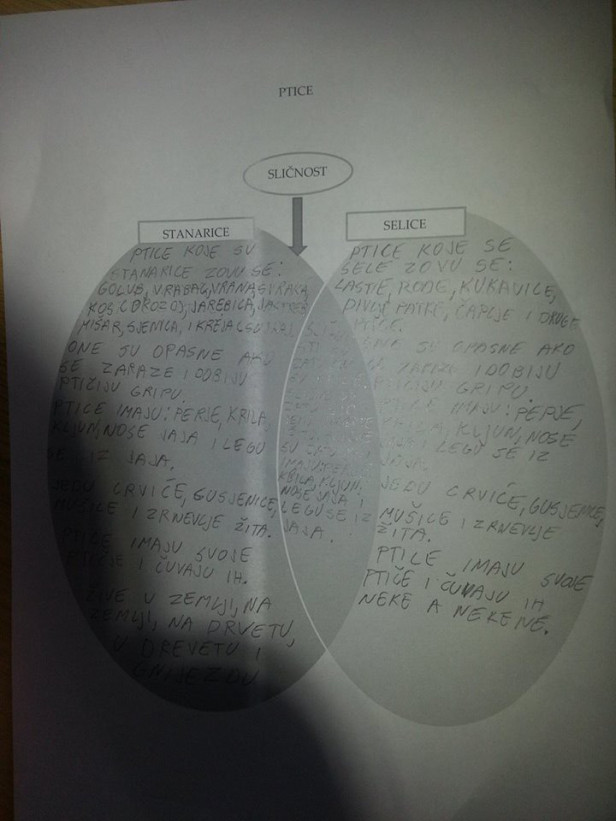 PTICE
SLIČNOST
STANARICE
PTICE KOJE SU
STANARICE ZOVU SE:
GOLUB, VRABAC, VRANA, SIVA
KOS (DROZD), JAREBICA,
MIŠAR, SJENICA, I KREJA
ONE SU OPASNE AKO
SE ZARAZE I DOBIJU
PTIČIJU GRIPU.
PTICE IMAJU: PERJE, KRILA,
KLJUN, NOSE JAJA I LEGU
SE IZ JAJA.
JEDU CRVIĆE, GUSJENICE,
MUŠICE I ZRNEVLJE ŽITA.
PTICE IMAJU SVOJE
PTIČE I ČUVAJU IH.
ŽIVE U ZEMLJI, NA
ZEMLJI, NA DRVETU,
U DREVETU I
GNIJEZDU
KRILA, KLJUN.
NOSE JAJA I
LEGU SE IZ
JAJA.
SELICE
PTICE KOJE SE
SELE ZOVU SE:
LASTE, RODE, KUKAVICE,
DIVLJE PATKE, ČAPLJE I DRUGE
PTICE.
ONE SU OPASNE AKO
SE ZARAZE I DOBIJU
PTIČIJU GRIPU.
IMAJU: PERJE,
KRILA, KLJUN, NOSE
LEGU SE IZ
JAJA.
JEDU CRVIĆE, GUSJENICE,
MUŠICE I ZRNEVLJE
ŽITA.
PTICE IMAJU SVOJE
PTIČE I ČUVAJU IH
NEKE A NEKE NE.